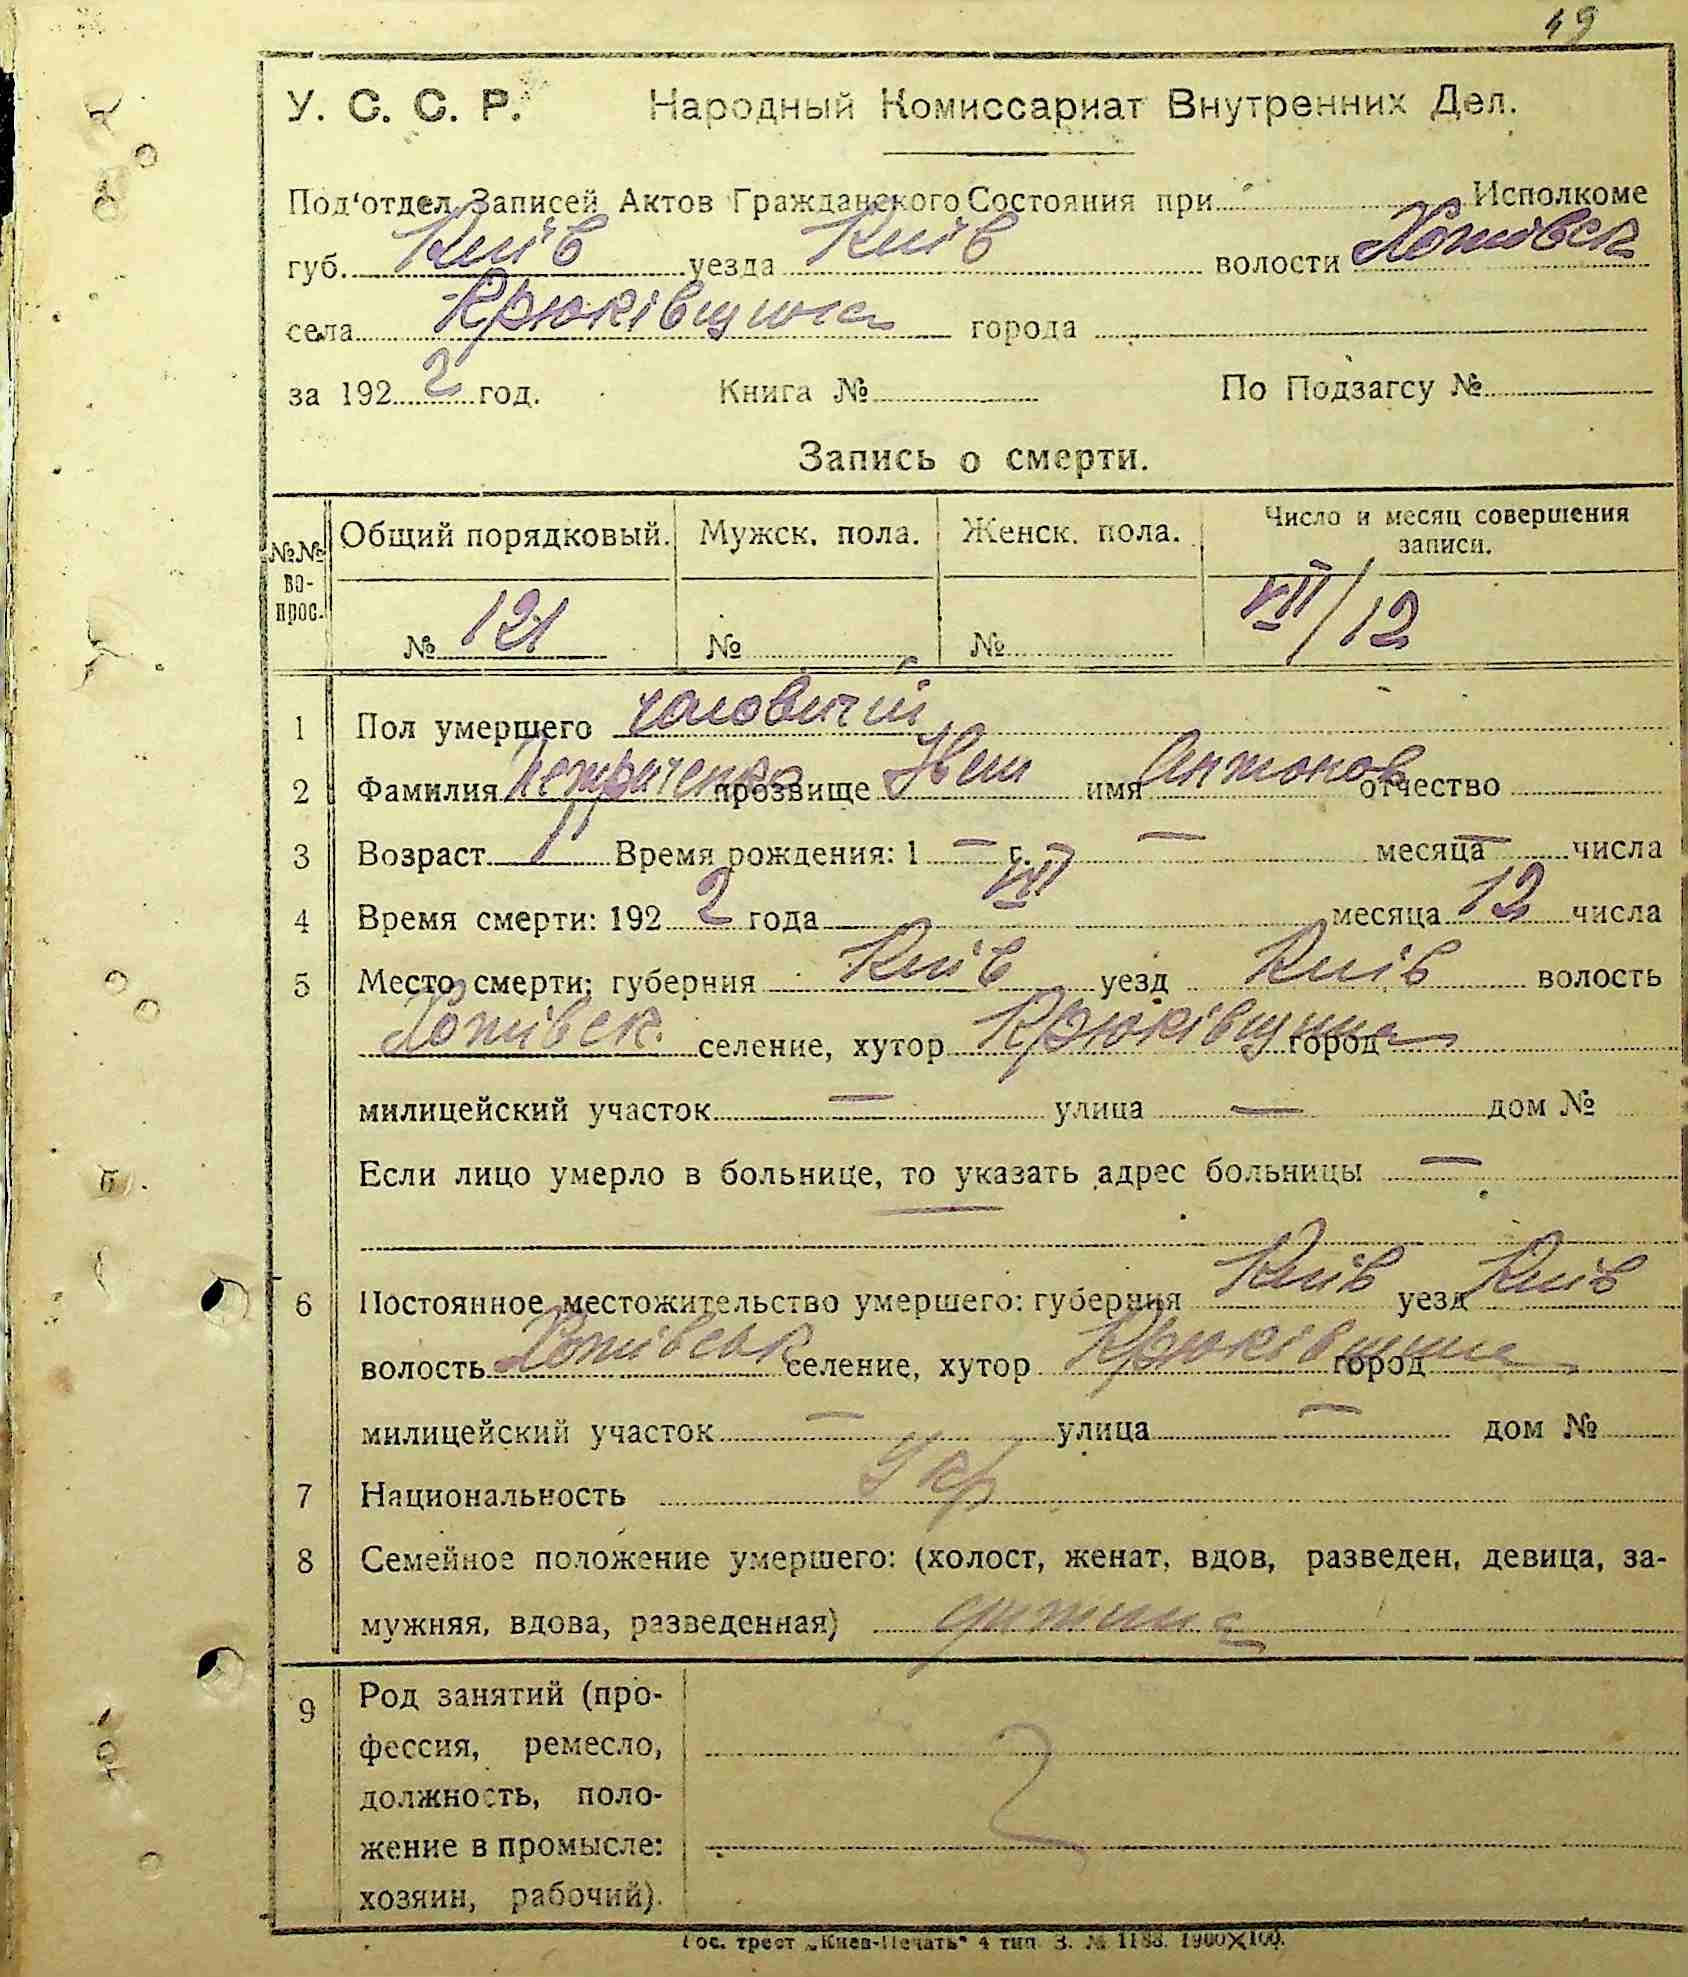 49
У. С. С. Р. Народный Комиссариат Внутренних Дел.
Под'отдел Записей Актов Гражданского Состояния при Исполкоме
губ. Київ уезда Київ волости Хотівск
села Крюківщина города
за 1922 год. Книга № По Подзагсу №
Запись о смерти.
№№ во-прос. Общий порядковый. Мужск. пола. Женск. пола. Число и месяц совершения записи.
№ 121 № № VII/12
1 Пол умершего чоловічий
2 Фамилия Петриченко прозвище имя Антонов отчество
3 Возраст 1 Время рождения: 1 — г. — месяца — числа
4 Время смерти: 1922 года VII месяца 12 числа
5 Место смерти: губерния Київ уезд Київ волость
Хотівск. селение, хутор Крюківщина город
милицейский участок — улица — дом №
Если лицо умерло в больнице, то указать адрес больницы —
—
6 Постоянное местожительство умершего: губерния Київ уезд Київ
волость Хотівськ селение, хутор Крюківщина город
милицейский участок — улица — дом №
7 Национальность Укр
8 Семейное положение умершего: (холост, женат, вдов, разведен, девица, за-
мужняя, вдова, разведенная) дитина
9 Род занятий (про-
фессия, ремесло,
должность, поло-
жение в промысле:
хозяин, рабочий).
Гос. трест „Киев-Печать" 4 тип. З. № 1183. 1900×100.